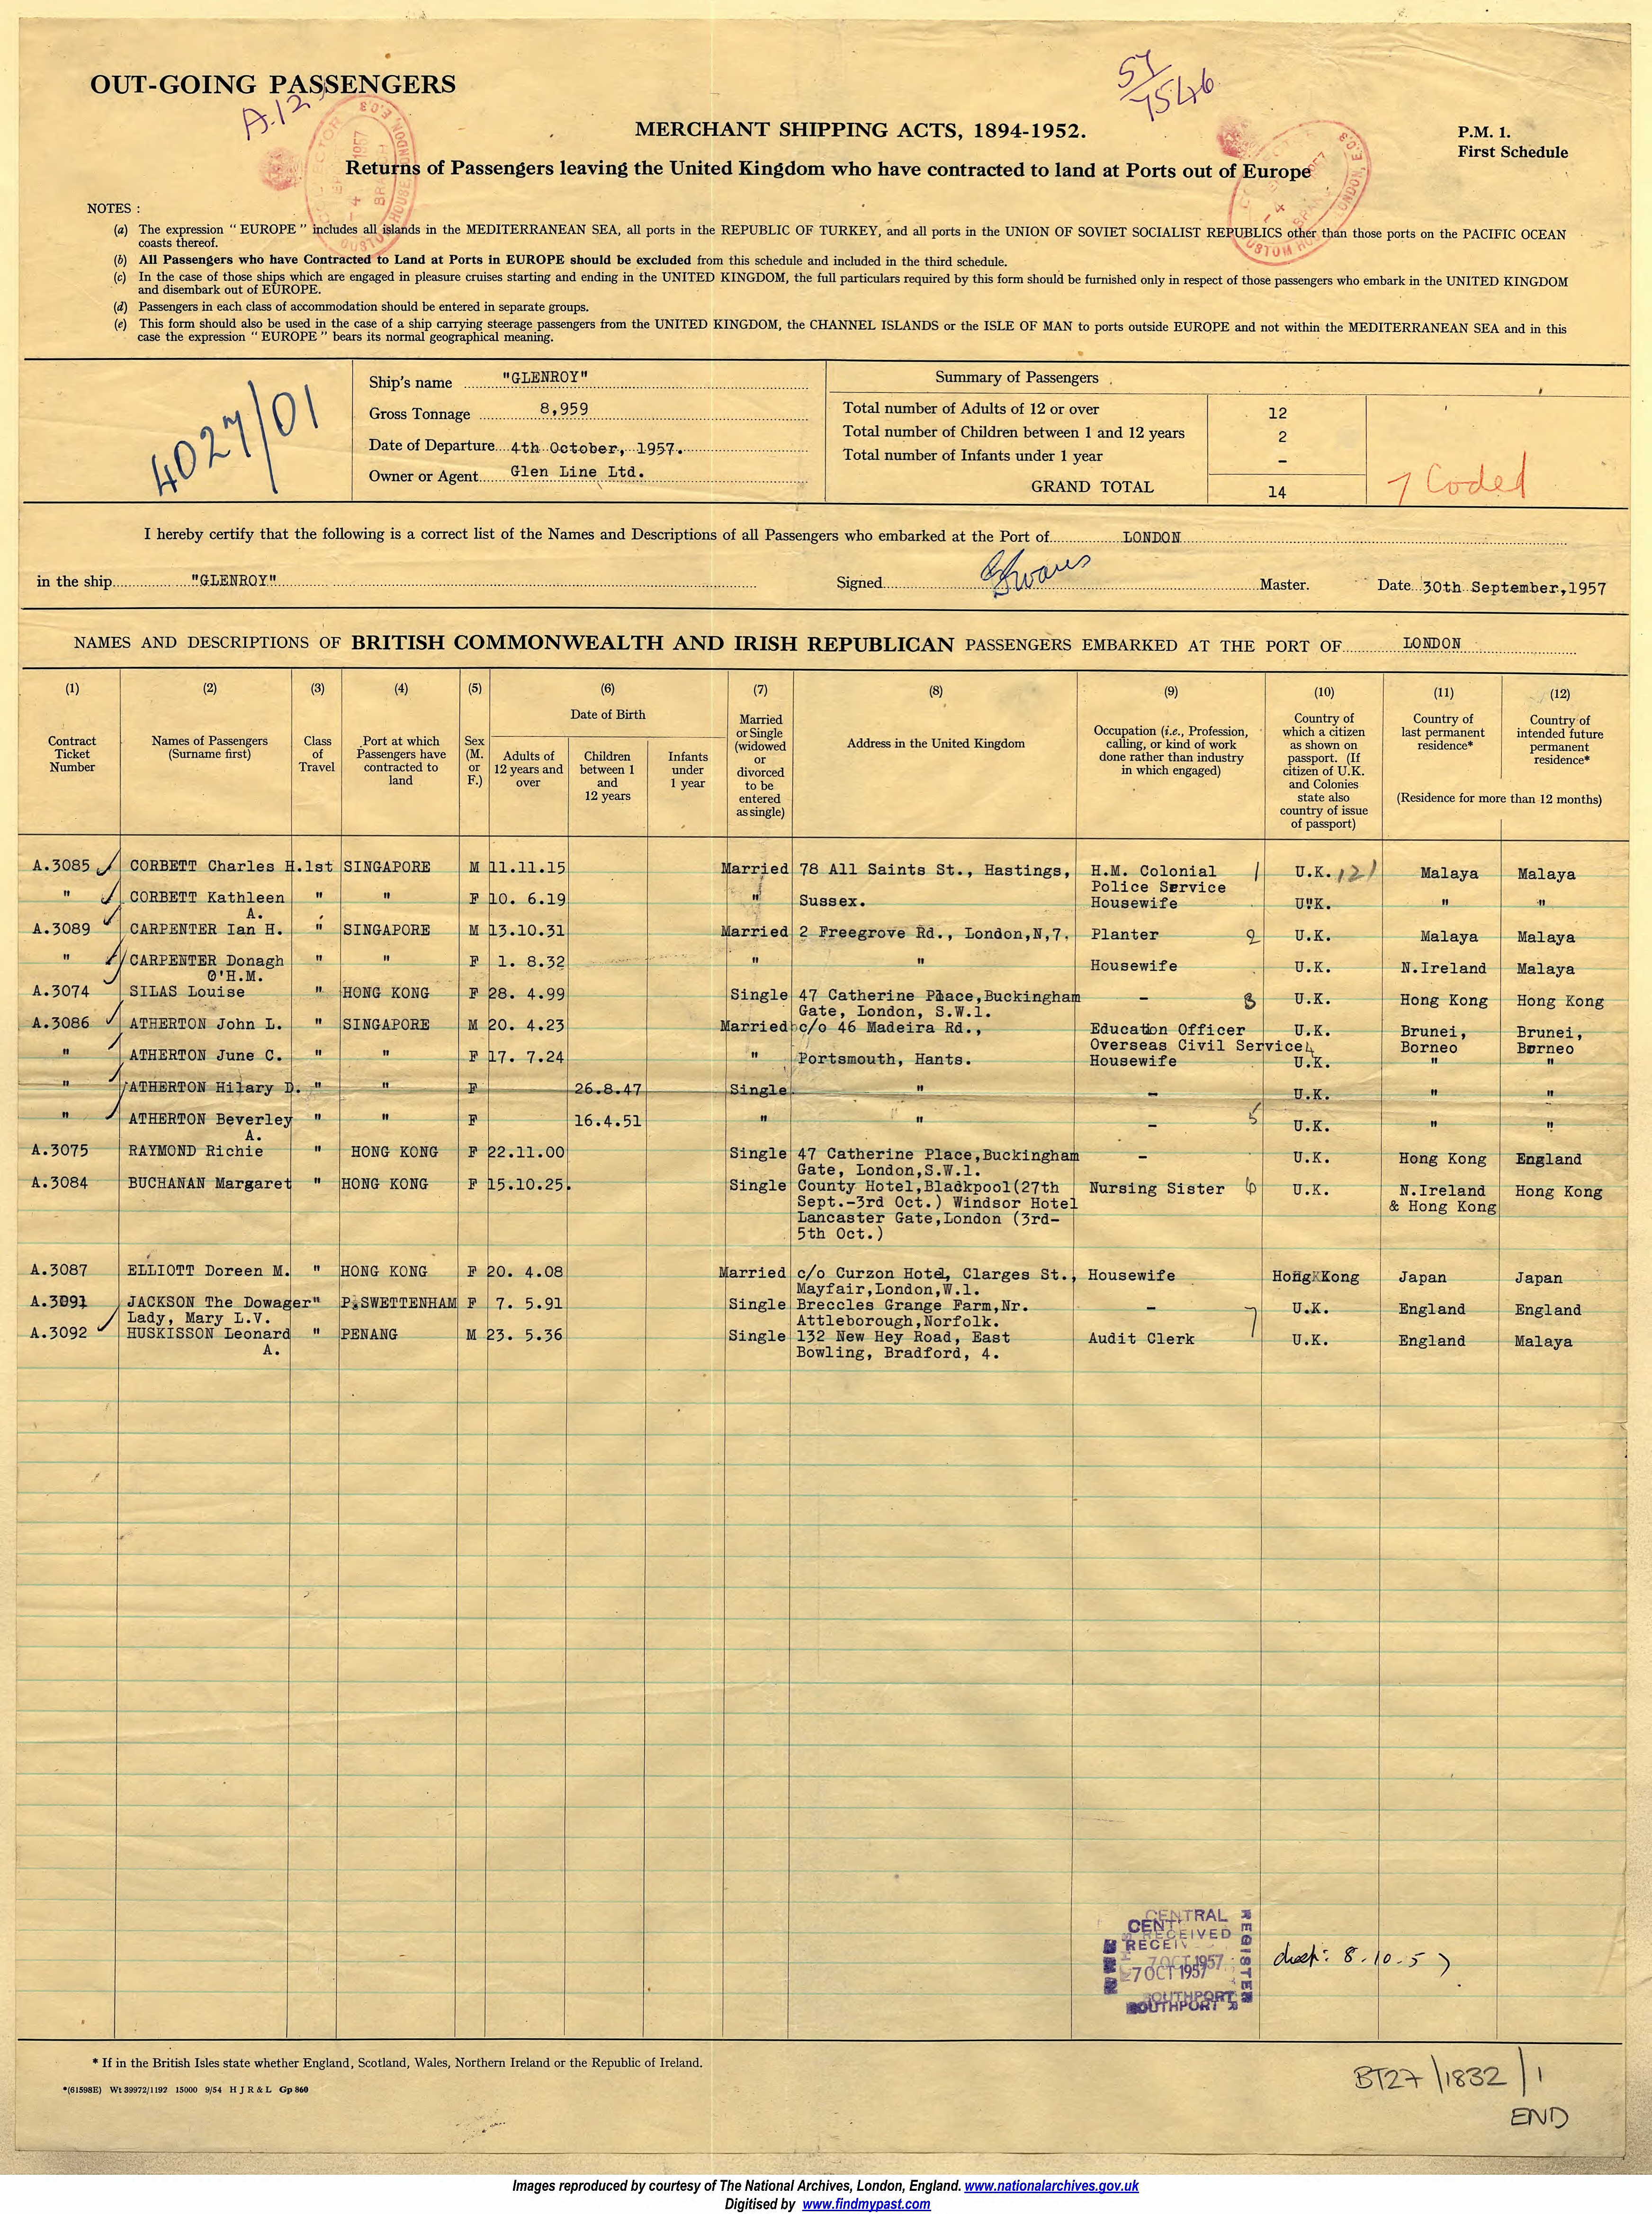 OUT-GOING PASSENGERS
A.12
57/7546
MERCHANT SHIPPING ACTS, 1894-1952.
P.M. 1.
First Schedule
Returns of Passengers leaving the United Kingdom who have contracted to land at Ports out of Europe
NOTES :
(a) The expression " EUROPE " includes all islands in the MEDITERRANEAN SEA, all ports in the REPUBLIC OF TURKEY, and all ports in the UNION OF SOVIET SOCIALIST REPUBLICS other than those ports on the PACIFIC OCEAN
coasts thereof.
(b) All Passengers who have Contracted to Land at Ports in EUROPE should be excluded from this schedule and included in the third schedule.
(c) In the case of those ships which are engaged in pleasure cruises starting and ending in the UNITED KINGDOM, the full particulars required by this form should be furnished only in respect of those passengers who embark in the UNITED KINGDOM
and disembark out of EUROPE.
(d) Passengers in each class of accommodation should be entered in separate groups.
(e) This form should also be used in the case of a ship carrying steerage passengers from the UNITED KINGDOM, the CHANNEL ISLANDS or the ISLE OF MAN to ports outside EUROPE and not within the MEDITERRANEAN SEA and in this
case the expression " EUROPE " bears its normal geographical meaning.
4027/01
Ship's name "GLENROY"
Gross Tonnage 8,959
Date of Departure 4th October, 1957.
Owner or Agent Glen Line Ltd.
Summary of Passengers
Total number of Adults of 12 or over 12
Total number of Children between 1 and 12 years 2
Total number of Infants under 1 year -
GRAND TOTAL 14
7 Coded
I hereby certify that the following is a correct list of the Names and Descriptions of all Passengers who embarked at the Port of LONDON
in the ship "GLENROY" Signed Master. Date 30th September,1957
NAMES AND DESCRIPTIONS OF BRITISH COMMONWEALTH AND IRISH REPUBLICAN PASSENGERS EMBARKED AT THE PORT OF LONDON
(1) (2) (3) (4) (5) (6) (7) (8) (9) (10) (11) (12)
Contract Ticket Number
Names of Passengers (Surname first)
Class of Travel
Port at which Passengers have contracted to land
Sex (M. or F.)
Date of Birth
Adults of 12 years and over
Children between 1 and 12 years
Infants under 1 year
Married or Single (widowed or divorced to be entered as single)
Address in the United Kingdom
Occupation (i.e., Profession, calling, or kind of work done rather than industry in which engaged)
Country of which a citizen as shown on passport. (If citizen of U.K. and Colonies state also country of issue of passport)
Country of last permanent residence*
Country of intended future permanent residence*
(Residence for more than 12 months)
A.3085 CORBETT Charles H. 1st SINGAPORE M 11.11.15 Married 78 All Saints St., Hastings, H.M. Colonial 1 U.K. 121 Malaya Malaya
Police Service
" CORBETT Kathleen " " F 10. 6.19 " Sussex. Housewife U.K. " "
A.
A.3089 CARPENTER Ian H. " SINGAPORE M 13.10.31 Married 2 Freegrove Rd., London,N,7. Planter 2 U.K. Malaya Malaya
" CARPENTER Donagh " " F 1. 8.32 " " Housewife U.K. N.Ireland Malaya
O'H.M.
A.3074 SILAS Louise " HONG KONG F 28. 4.99 Single 47 Catherine Place,Buckingham - 3 U.K. Hong Kong Hong Kong
Gate, London, S.W.1.
A.3086 ATHERTON John L. " SINGAPORE M 20. 4.23 Married c/o 46 Madeira Rd., Education Officer U.K. Brunei, Brunei,
Overseas Civil Service 4 Borneo Borneo
" ATHERTON June C. " " F 17. 7.24 " Portsmouth, Hants. Housewife U.K. " "
" ATHERTON Hilary D. " " F 26.8.47 Single " - U.K. " "
" ATHERTON Beverley " " F 16.4.51 " " - 5 U.K. " "
A.
A.3075 RAYMOND Richie " HONG KONG F 22.11.00 Single 47 Catherine Place,Buckingham - U.K. Hong Kong England
Gate, London,S.W.1.
A.3084 BUCHANAN Margaret " HONG KONG F 15.10.25. Single County Hotel,Blackpool(27th Nursing Sister 6 U.K. N.Ireland Hong Kong
Sept.-3rd Oct.) Windsor Hotel & Hong Kong
Lancaster Gate,London (3rd-
5th Oct.)
A.3087 ELLIOTT Doreen M. " HONG KONG F 20. 4.08 Married c/o Curzon Hotel, Clarges St., Housewife Hong Kong Japan Japan
Mayfair,London,W.1.
A.3091 JACKSON The Dowager " P.SWETTENHAM F 7. 5.91 Single Breccles Grange Farm,Nr. - 7 U.K. England England
Lady, Mary L.V. Attleborough,Norfolk.
A.3092 HUSKISSON Leonard " PENANG M 23. 5.36 Single 132 New Hey Road, East Audit Clerk U.K. England Malaya
A. Bowling, Bradford, 4.
CENTRAL REGISTER
RECEIVED
7 OCT 1957
SOUTHPORT
8.10.57
* If in the British Isles state whether England, Scotland, Wales, Northern Ireland or the Republic of Ireland.
*(61598E) Wt 39972/1192 15000 9/54 H J R & L Gp 860
BT27/1832/1
END
Images reproduced by courtesy of The National Archives, London, England. www.nationalarchives.gov.uk
Digitised by www.findmypast.com